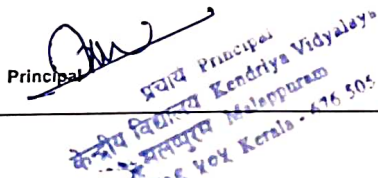 Principal
प्राचार्य Principal
केन्द्रीय विद्यालय Kendriya Vidyalaya
मलप्पुरम Malappuram
Kerala - 676 505